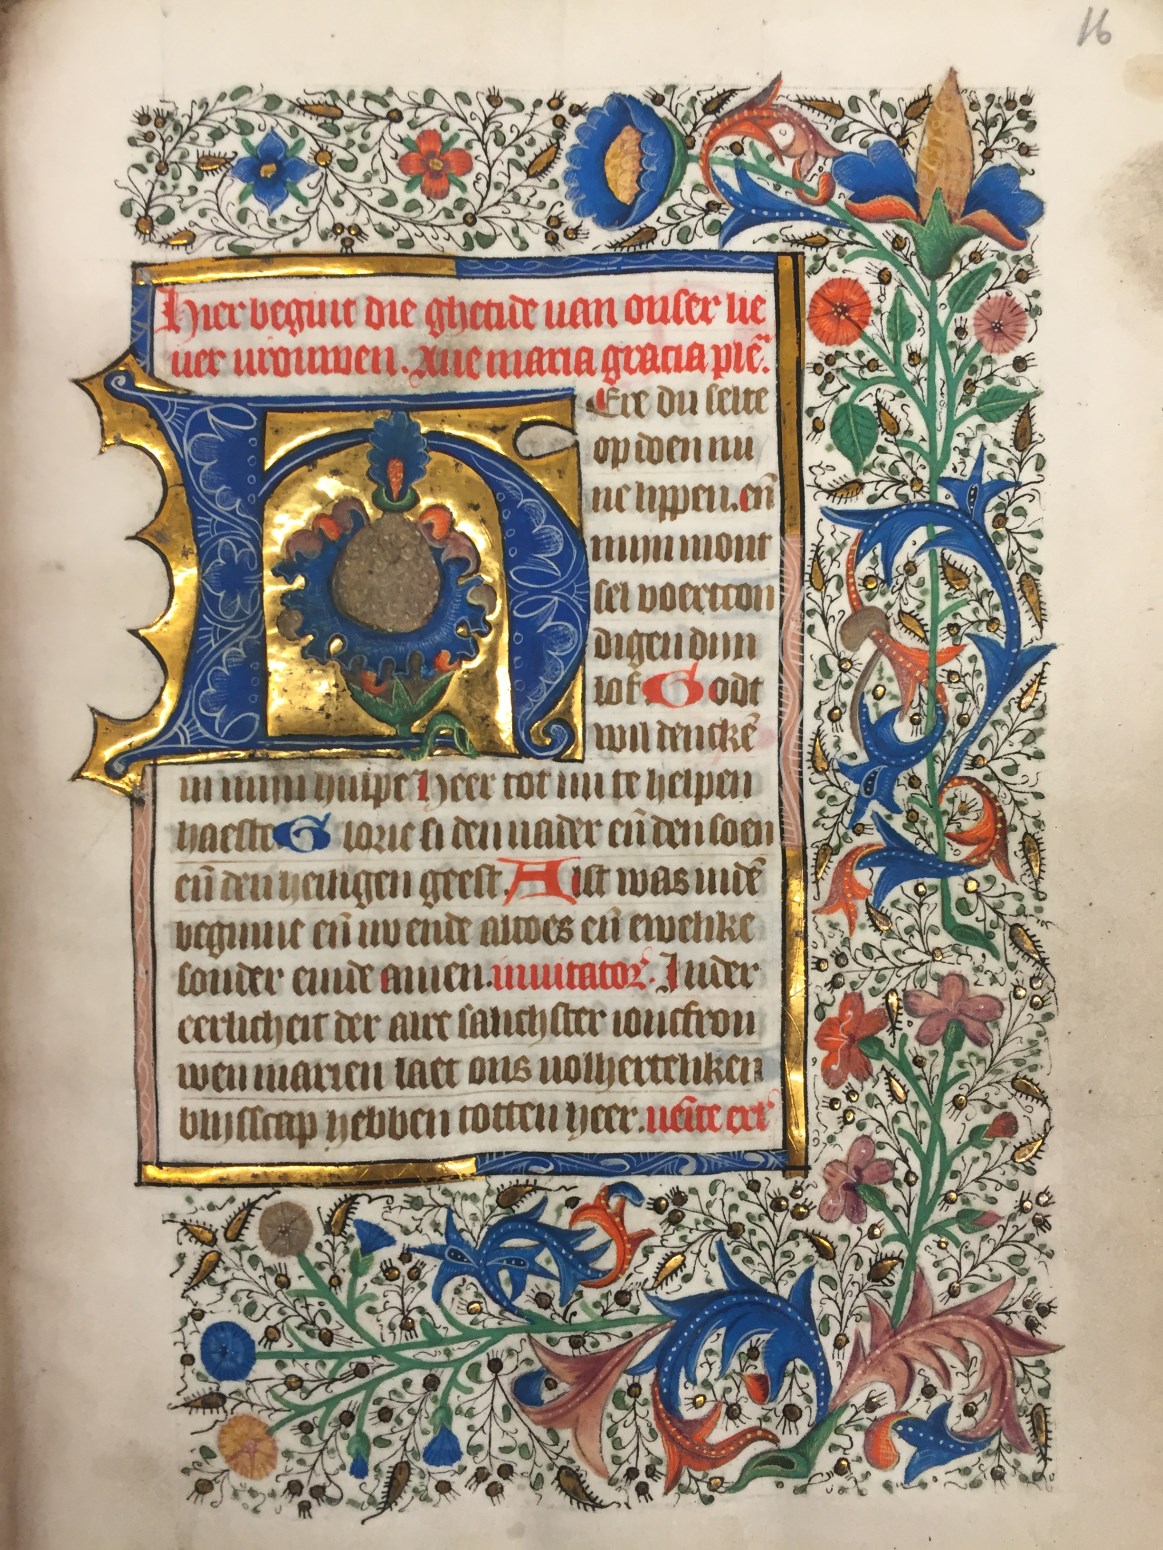 16
Hier begint die ghetide uan onser lie
uer urouwen. Aue maria gracia plē.
HEre du selte
op doen mi
ne lippen. eñ
mijn mont
sel voertcon
digen dijn
lof. Godt
wil denckē
in mijn hulpe Heer tot mi te helpen
haeste Glorie si den uader eñ den soen
eñ den heiligen geest. Alst was indē
beginne eñ nv ende altoes eñ ewelike
sonder einde amen. inuitator. In der
eerlicheit der alre salichster ioncfrou
wen marien laet ons uolherteliken
blijsscap hebben totten heer. ueīte ex̄r